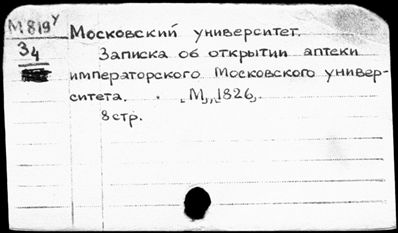 М819у
34
Московский университет.
Записка об открытии аптеки
императорского Московского универ-
ситета. [М., 1826].
8 стр.